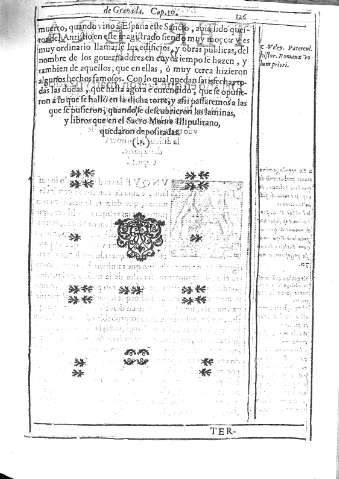 de Granada. Cap. 10. 126
muerto, quando vino a España este Sancto, aya sido quei-
en este magistrado siendo muy moço: y es
muy ordinario llamarse los edificios, y obras publicas, del
nombre de los governadores en cuyo tiempo se hazen, y
tambien de aquellos, que en ellas, ò muy cerca hizieron
algunos hechos famosos. Con lo qual quedan satisfechas to-
das las dudas, que hasta agora è entendido, que se opusie-
ron à lo que se hallò en la dicha torre, y assi passaremos a las
que se pusieron, quando se descubrieron las laminas,
y libros que en el Sacro Monte Illipulitano,
quedaron depositadas.
c Veley. Patercul.
histor. Romanæ vo
lum. priori.
TER-